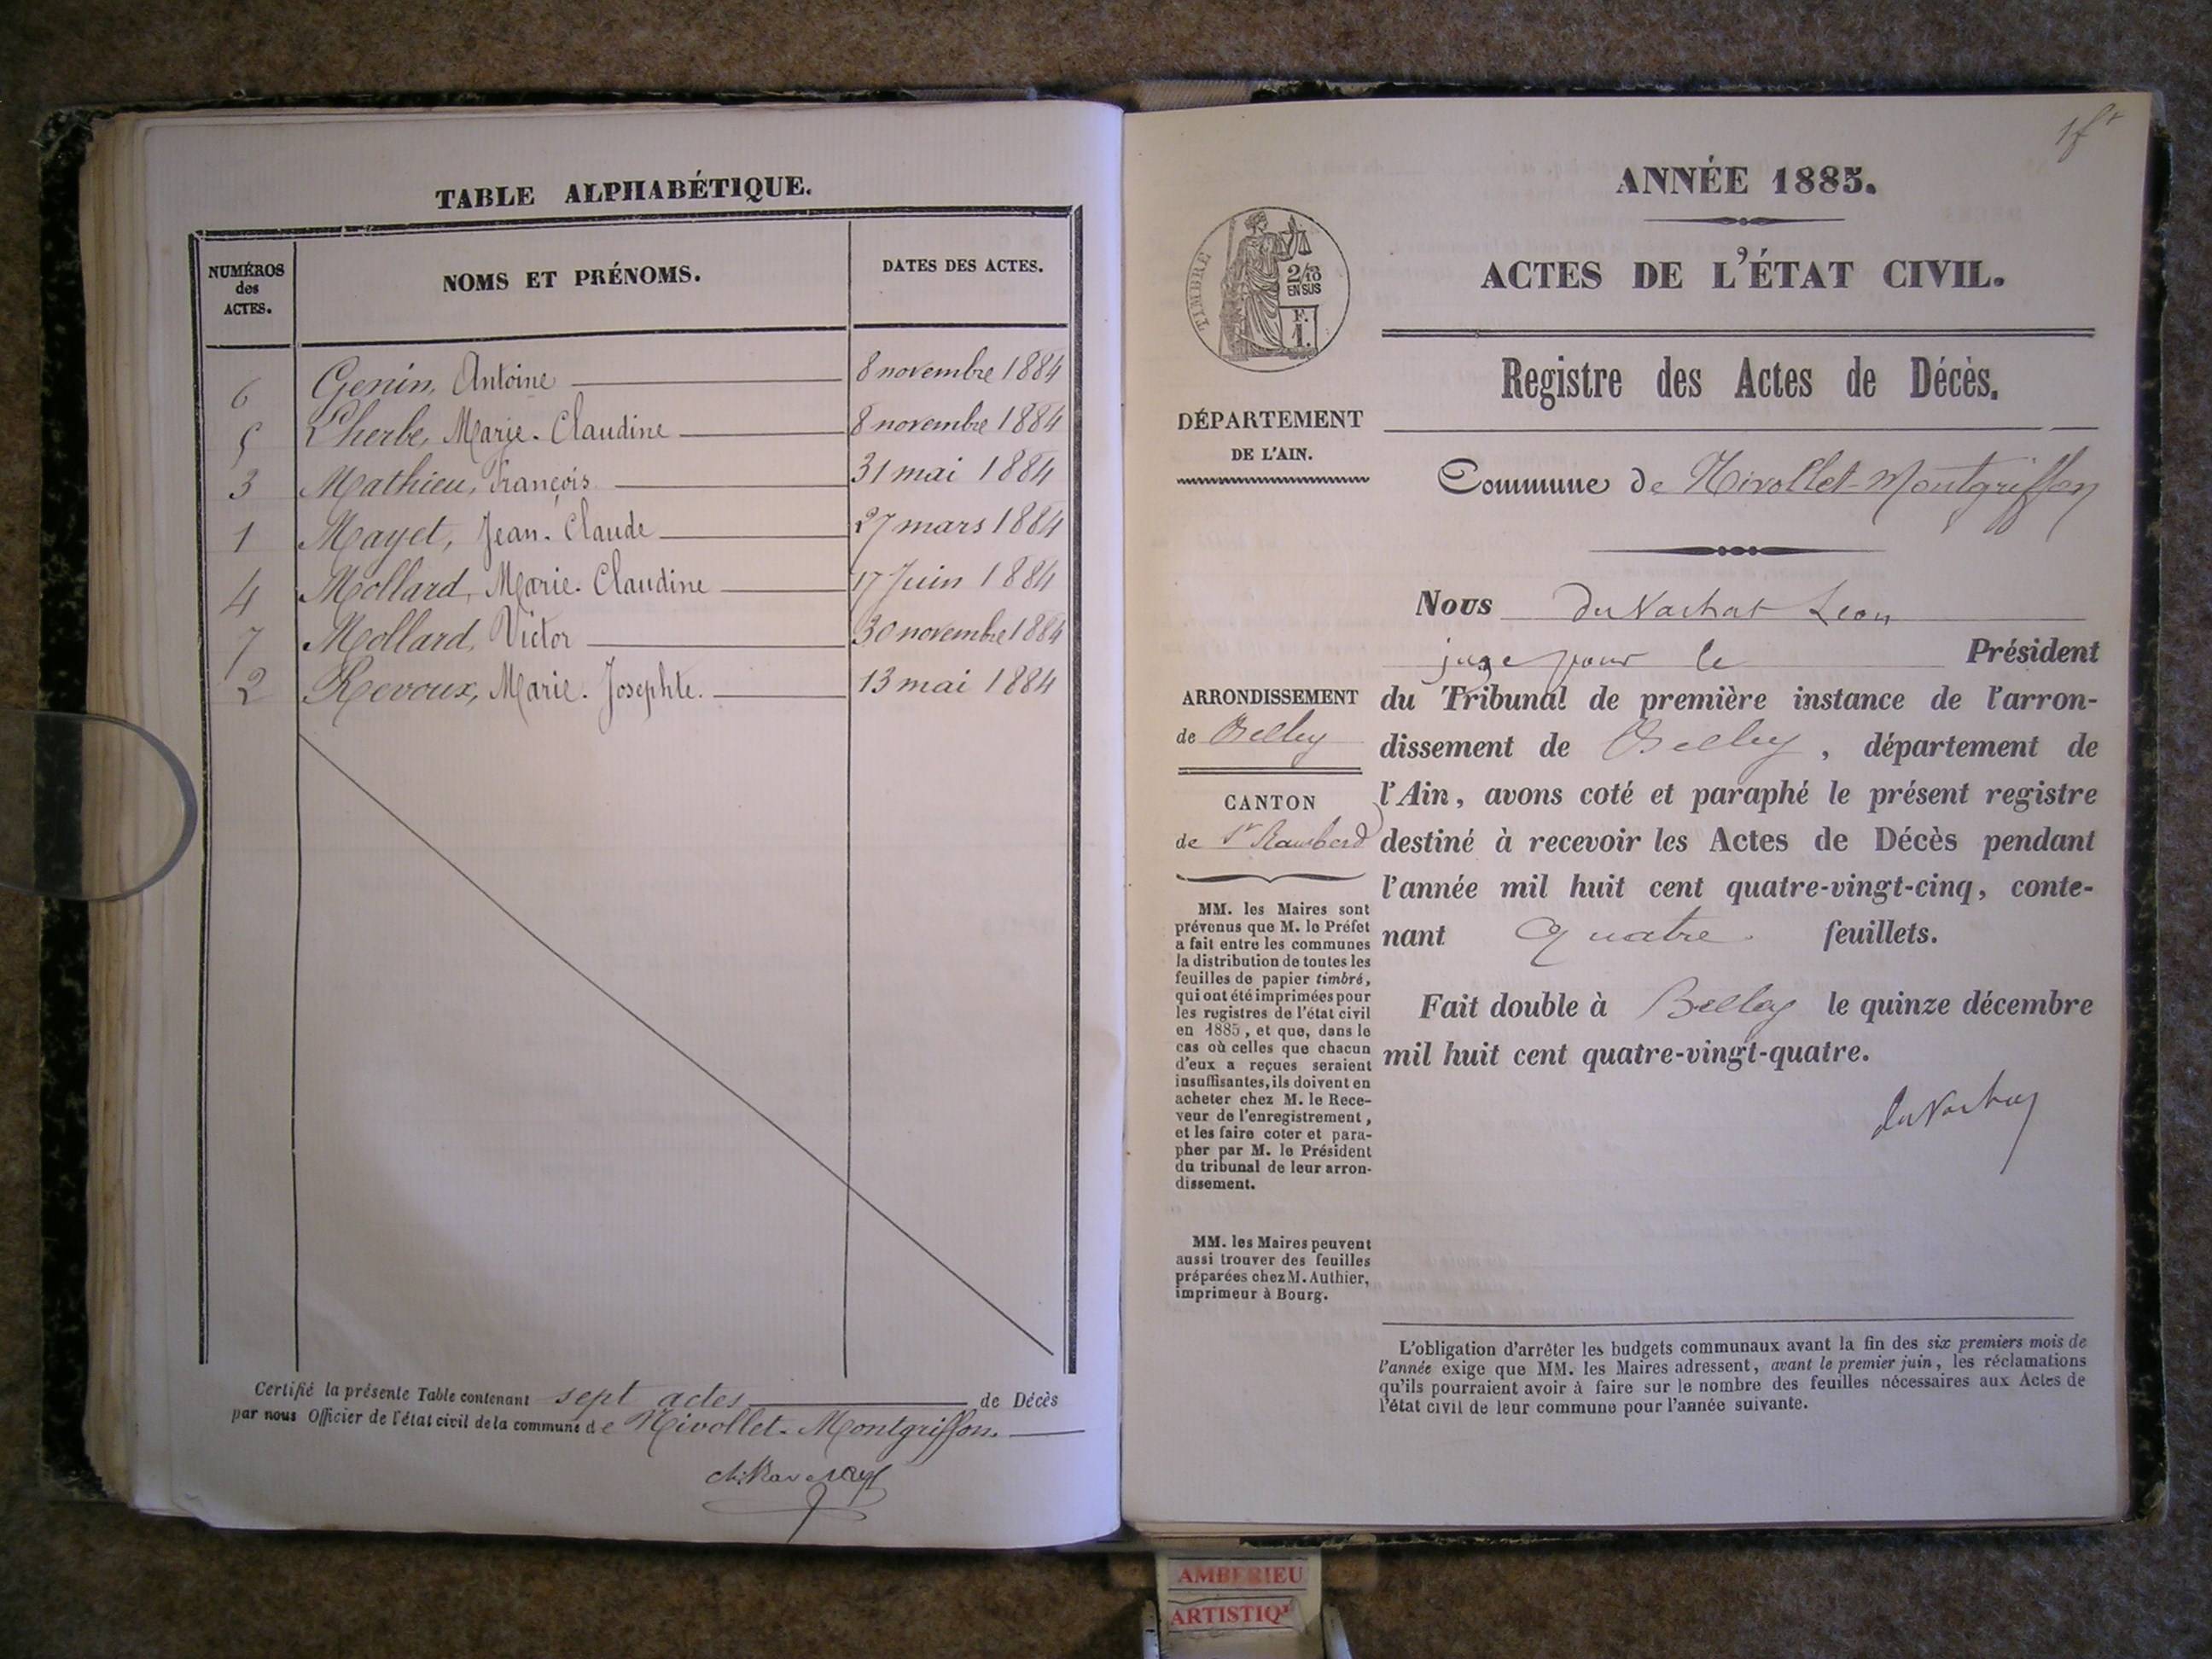 TABLE ALPHABÉTIQUE.
NUMÉROS
des
ACTES.
NOMS ET PRÉNOMS.
DATES DES ACTES.
6 Genin, Antoine 8 novembre 1884
5 Lherbe, Marie-Claudine 8 novembre 1884
3 Mathieu, François 31 mai 1884
1 Mayet, Jean-Claude 27 mars 1884
4 Mollard, Marie-Claudine 17 Juin 1884
7 Mollard, Victor 30 novembre 1884
2 Revoux, Marie-Josephte. 13 mai 1884
Certifié la présente Table contenant sept actes de Décès
par nous Officier de l'état civil de la commune de Nivollet-Montgriffon.
1 ft
ANNÉE 1885.
ACTES DE L'ÉTAT CIVIL.
TIMBRE
2/10
EN SUS
F.
1.
Registre des Actes de Décès.
DÉPARTEMENT
DE L'AIN.
Commune de Nivollet-Montgriffon
Nous du Vachat Leon
juge pour le Président
du Tribunal de première instance de l'arron-
dissement de Belley, département de
l'Ain, avons coté et paraphé le présent registre
destiné à recevoir les Actes de Décès pendant
l'année mil huit cent quatre-vingt-cinq, conte-
nant quatre feuillets.
Fait double à Belley le quinze décembre
mil huit cent quatre-vingt-quatre.
du Vachat
ARRONDISSEMENT
de Belley
CANTON
de St Rambert
MM. les Maires sont
prévenus que M. le Préfet
a fait entre les communes
la distribution de toutes les
feuilles de papier timbré,
qui ont été imprimées pour
les registres de l'état civil
en 1885, et que, dans le
cas où celles que chacun
d'eux a reçues seraient
insuffisantes, ils doivent en
acheter chez M. le Rece-
veur de l'enregistrement,
et les faire coter et para-
pher par M. le Président
du tribunal de leur arron-
dissement.
MM. les Maires peuvent
aussi trouver des feuilles
préparées chez M. Authier,
imprimeur à Bourg.
L'obligation d'arrêter les budgets communaux avant la fin des six premiers mois de
l'année exige que MM. les Maires adressent, avant le premier juin, les réclamations
qu'ils pourraient avoir à faire sur le nombre des feuilles nécessaires aux Actes de
l'état civil de leur commune pour l'année suivante.
AMBERIEU
ARTISTIQU